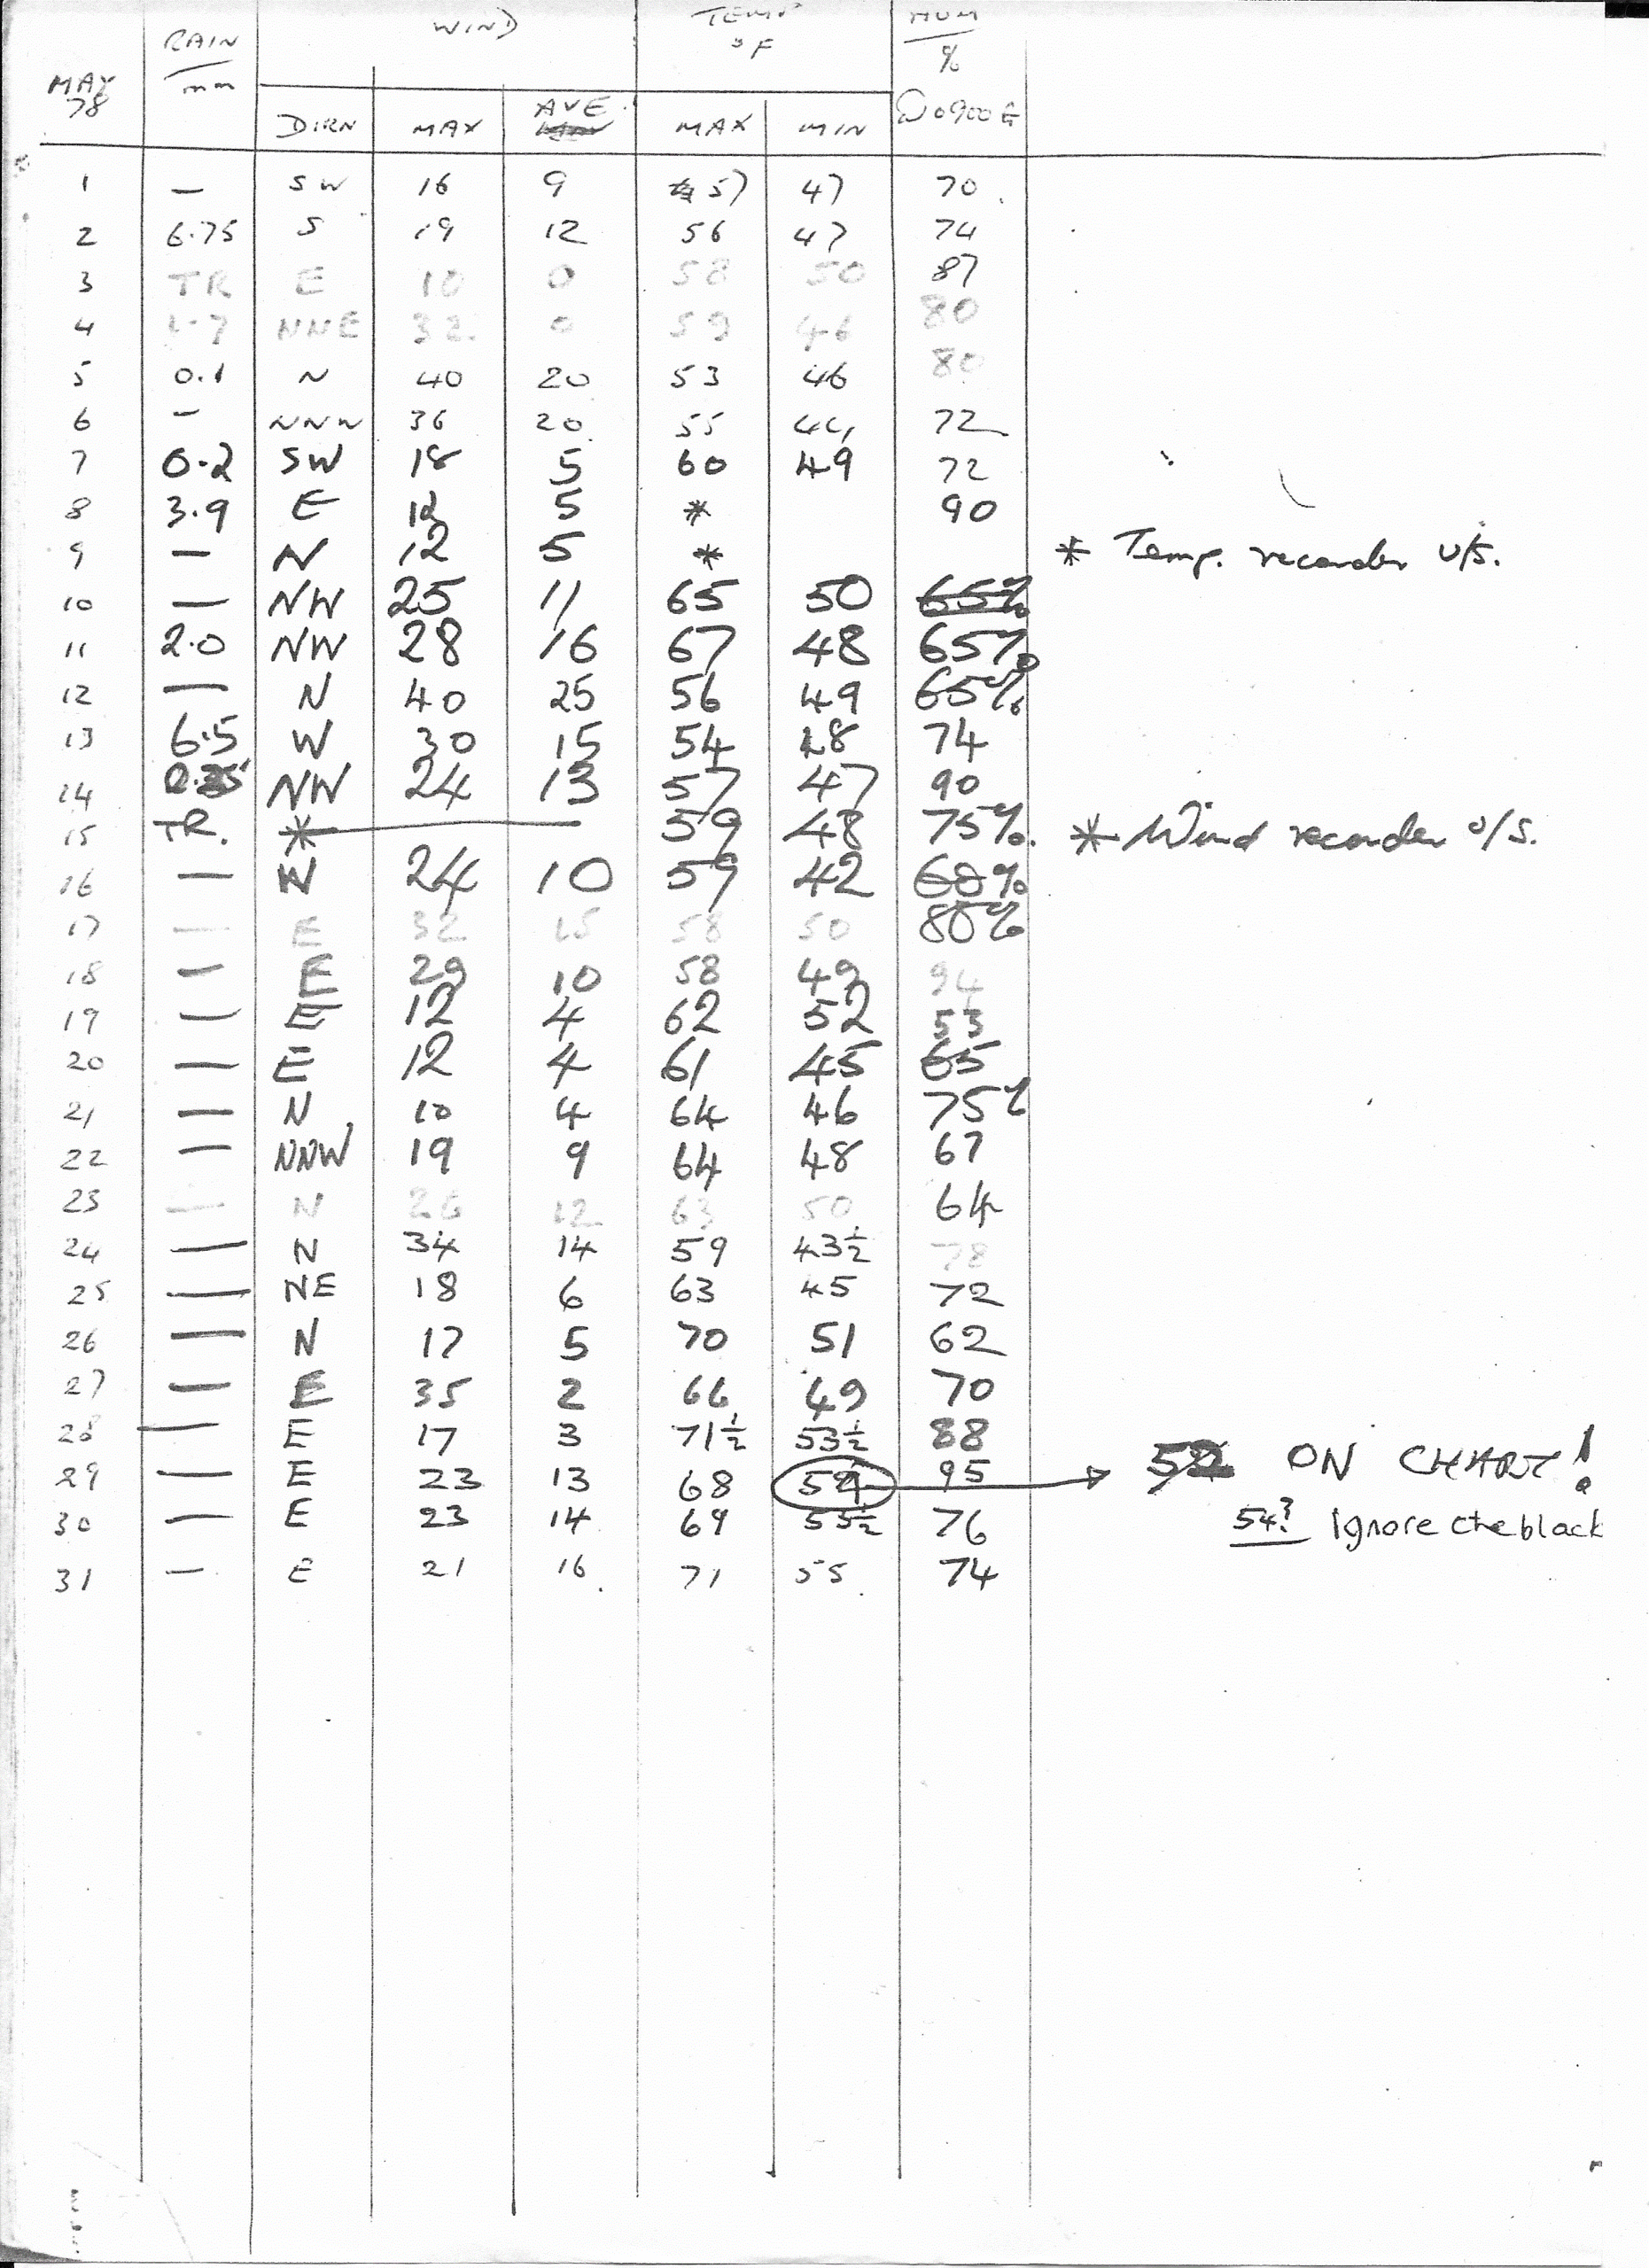 RAIN WIND TEMP HUM
MAY mm °F %
78 DIRN MAX AVE MAX MIN @ 0900 G
1 — SW 16 9 57 47 70
2 6.75 S 19 12 56 47 74
3 TR E 10 0 58 50 87
4 NNE 32 0 59 46 80
5 0.1 N 40 20 53 46 80
6 — NNW 36 20 55 44 72
7 0.2 SW 18 5 60 49 72
8 3.9 E 12 5 * 90
9 — N 12 5 * * Temp. recorder U/S.
10 — NW 25 11 65 50 65%
11 2.0 NW 28 16 67 48 65%
12 — N 40 25 56 49 65%
13 6.5 W 30 15 54 48 74
14 NW 24 13 57 47 90
15 TR. * — 59 48 75%. * Wind recorder U/S.
16 — W 24 10 59 42 60%
17 — E 32 15 58 50 80%
18 — E 29 10 58 49 94
19 — E 12 4 62 52 53
20 — E 12 4 61 45 65
21 — N 10 4 64 46 75%
22 — NNW 19 9 64 48 67
23 — N 26 12 63 50 64
24 — N 34 14 59 43½ 78
25 — NE 18 6 63 45 72
26 — N 17 5 70 51 62
27 — E 35 2 66 49 70
28 — E 17 3 71½ 53½ 88
29 — E 23 13 68 54 95 52 ON CHART!
30 — E 23 14 69 55½ 76 54? Ignore the black
31 — E 21 16 71 55 74